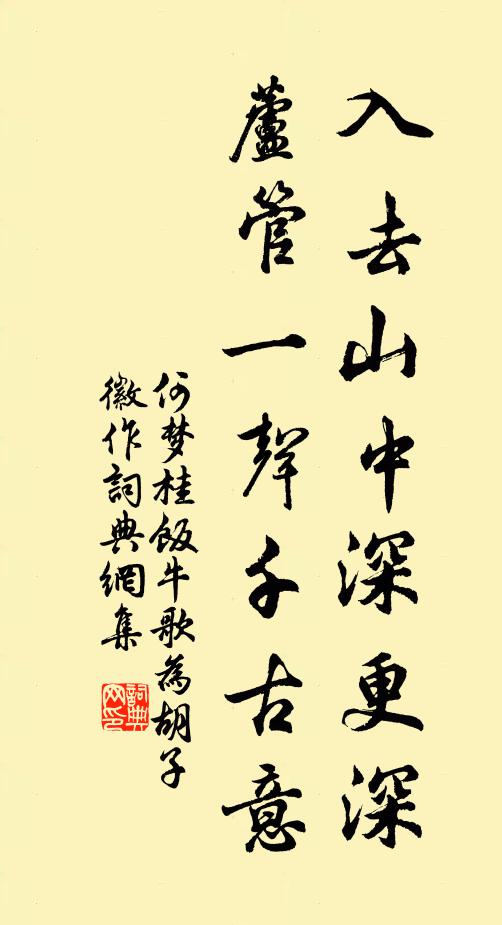 入去山中深更深
蘆管一聲千古意
何梦桂飯牛歌為胡子
徽作詞典網集
詞典
网印